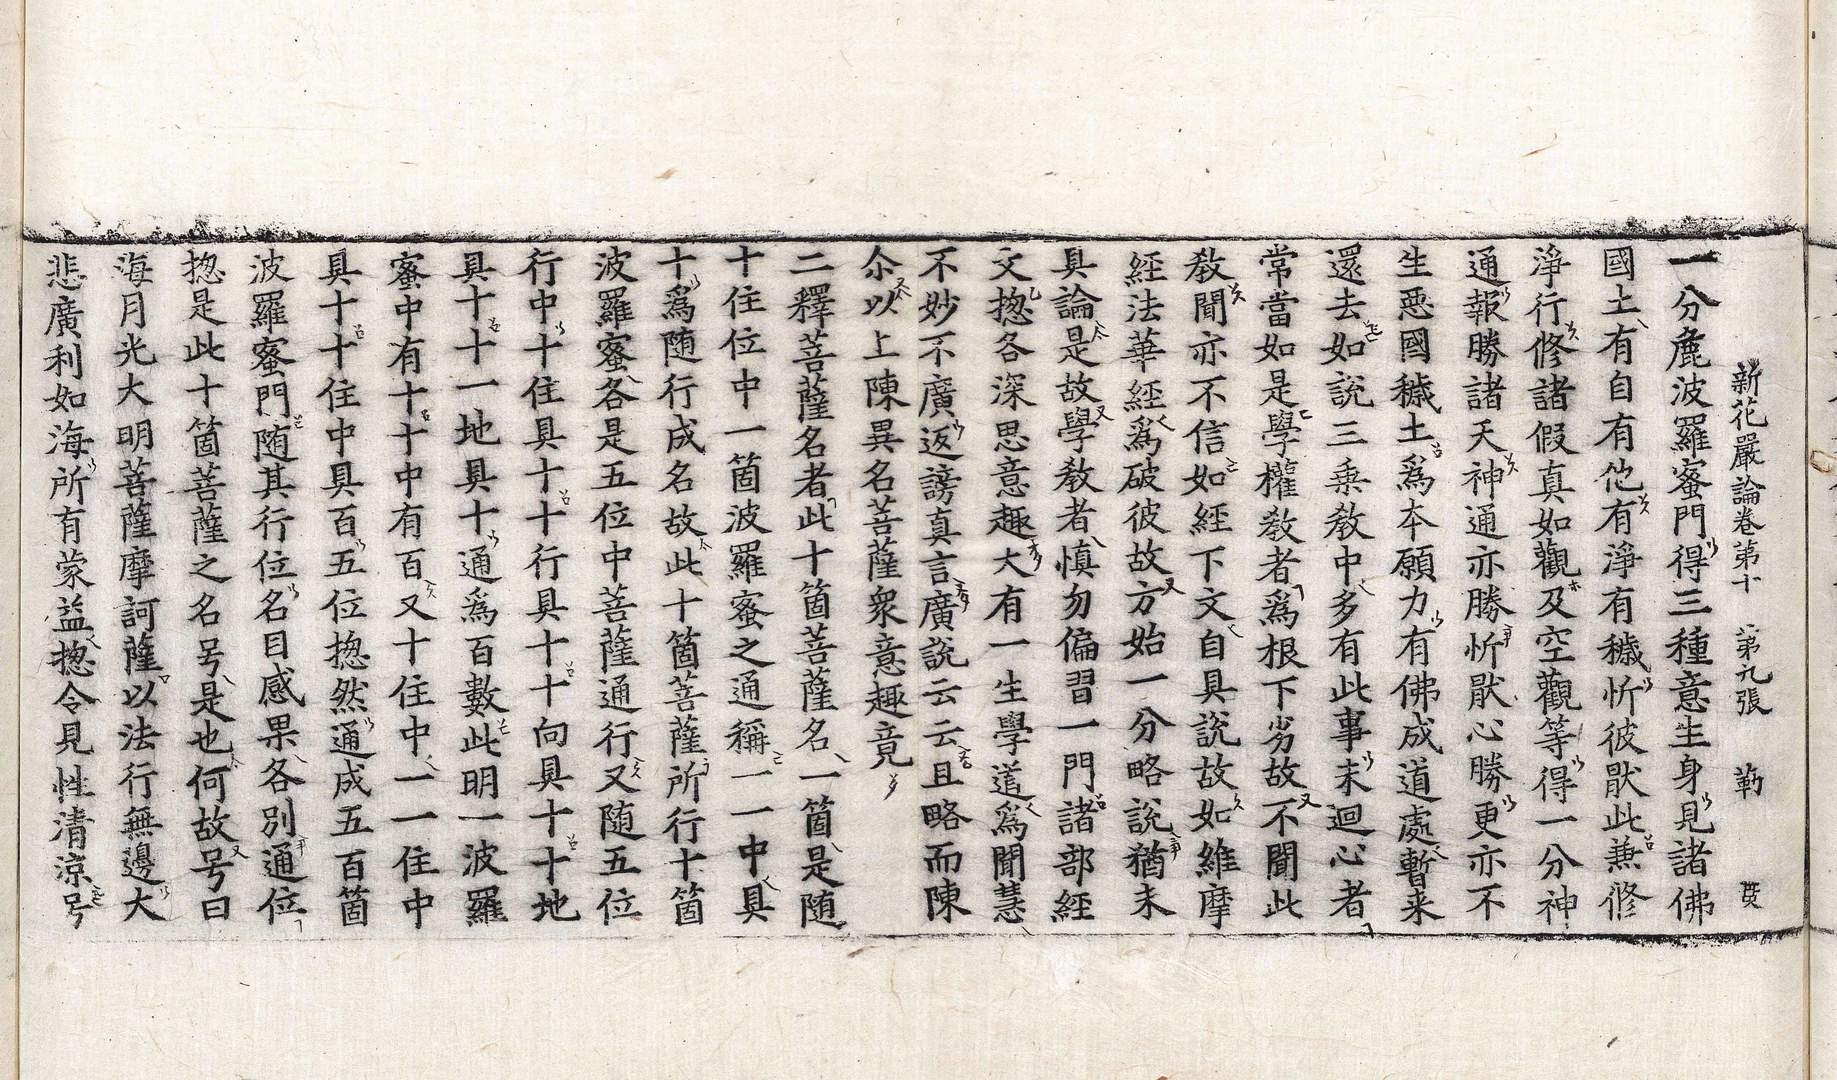 新花嚴論卷第十　第九張　勒
一分麁波羅蜜門得三種意生身見諸佛
國土有自有他有淨有穢忻彼猒此兼修
淨行修諸假真如觀及空觀等得一分神
通報勝諸天神通亦勝忻猒心勝更亦不
生惡國穢土爲本願力有佛成道處暫来
還去如說三乗教中多有此事未迴心者
常當如是學權教者爲根下劣故不聞此
教聞亦不信如經下文自具說故如維摩
經法華經爲破彼故方始一分略說猶未
具論是故學教者慎勿偏習一門諸部經
文揔各深思意趣大有一生學道爲聞慧
不妙不廣返謗真言廣說云云且略而陳
尒以上陳異名菩薩衆意趣竟
二釋菩薩名者此十箇菩薩名一箇是随
十住位中一箇波羅蜜之通稱一一中具
十爲随行成名故此十箇菩薩所行十箇
波羅蜜各是五位中菩薩通行又随五位
行中十住具十十行具十十向具十十地
具十十一地具十通爲百數此明一波羅
蜜中有十十中有百又十住中一一住中
具十十住中具百五位揔然通成五百箇
波羅蜜門随其行位名目感果各別通位
揔是此十箇菩薩之名号是也何故号曰
海月光大明菩薩摩訶薩以法行無邊大
悲廣利如海所有蒙益揔令見性清涼号